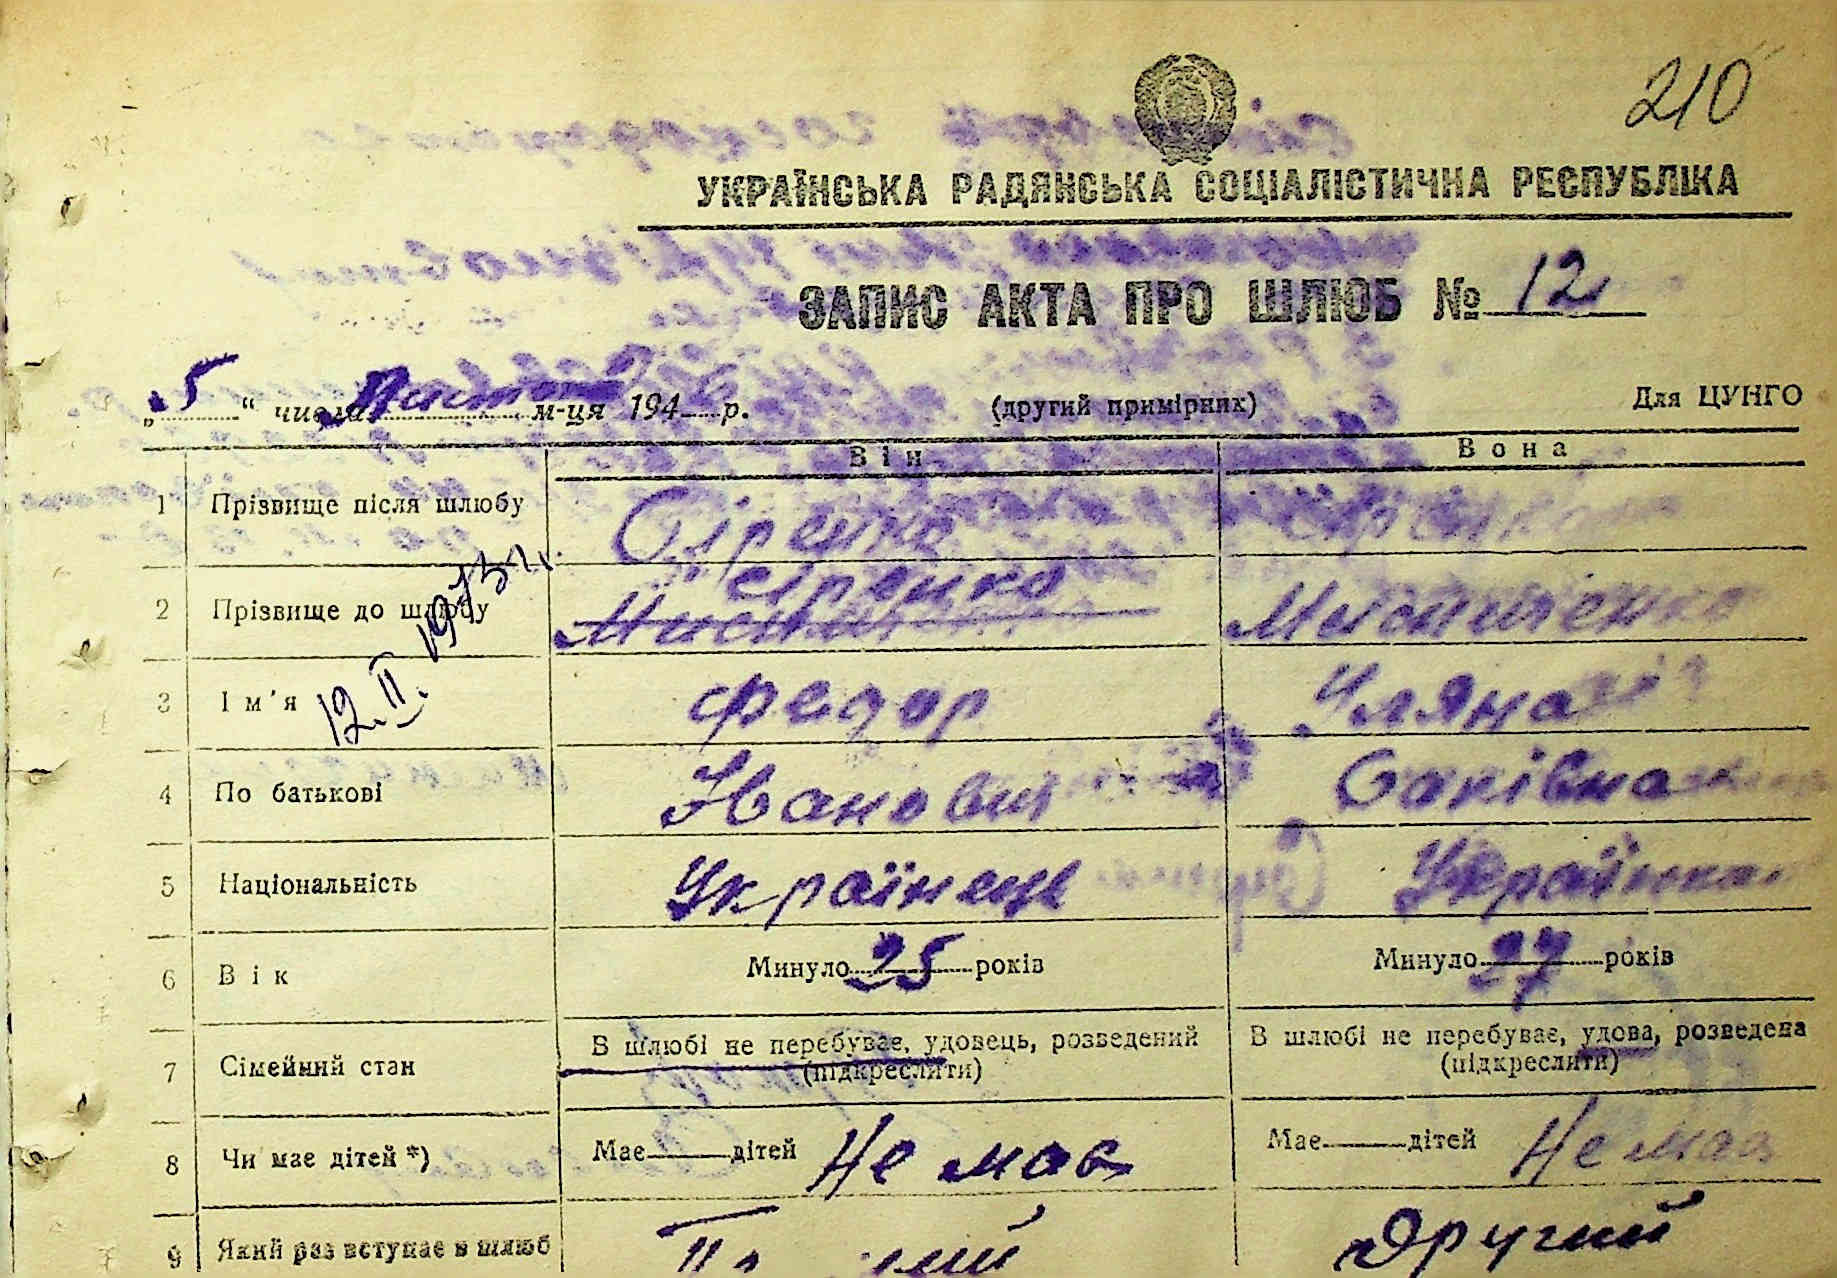 210
УКРАЇНСЬКА РАДЯНСЬКА СОЦІАЛІСТИЧНА РЕСПУБЛІКА
ЗАПИС АКТА ПРО ШЛЮБ № 12
„5“ числа м-ця 194 р. (другий примірник) Для ЦУНГО
Він Вона
1 Прізвище після шлюбу Сіренко Сіренко
Сіренко
2 Прізвище до шлюбу Мисниченко
12.II.1973 г.
3 Ім'я Федор Уляна
4 По батькові Іванович
5 Національність Українець Українка
6 Вік Минуло 25 років Минуло 27 років
7 Сімейний стан В шлюбі не перебуває, удовець, розведений (підкреслити) В шлюбі не перебуває, удова, розведена (підкреслити)
8 Чи має дітей *) Має дітей Не має Має дітей Не має
9 Який раз вступає в шлюб Другий